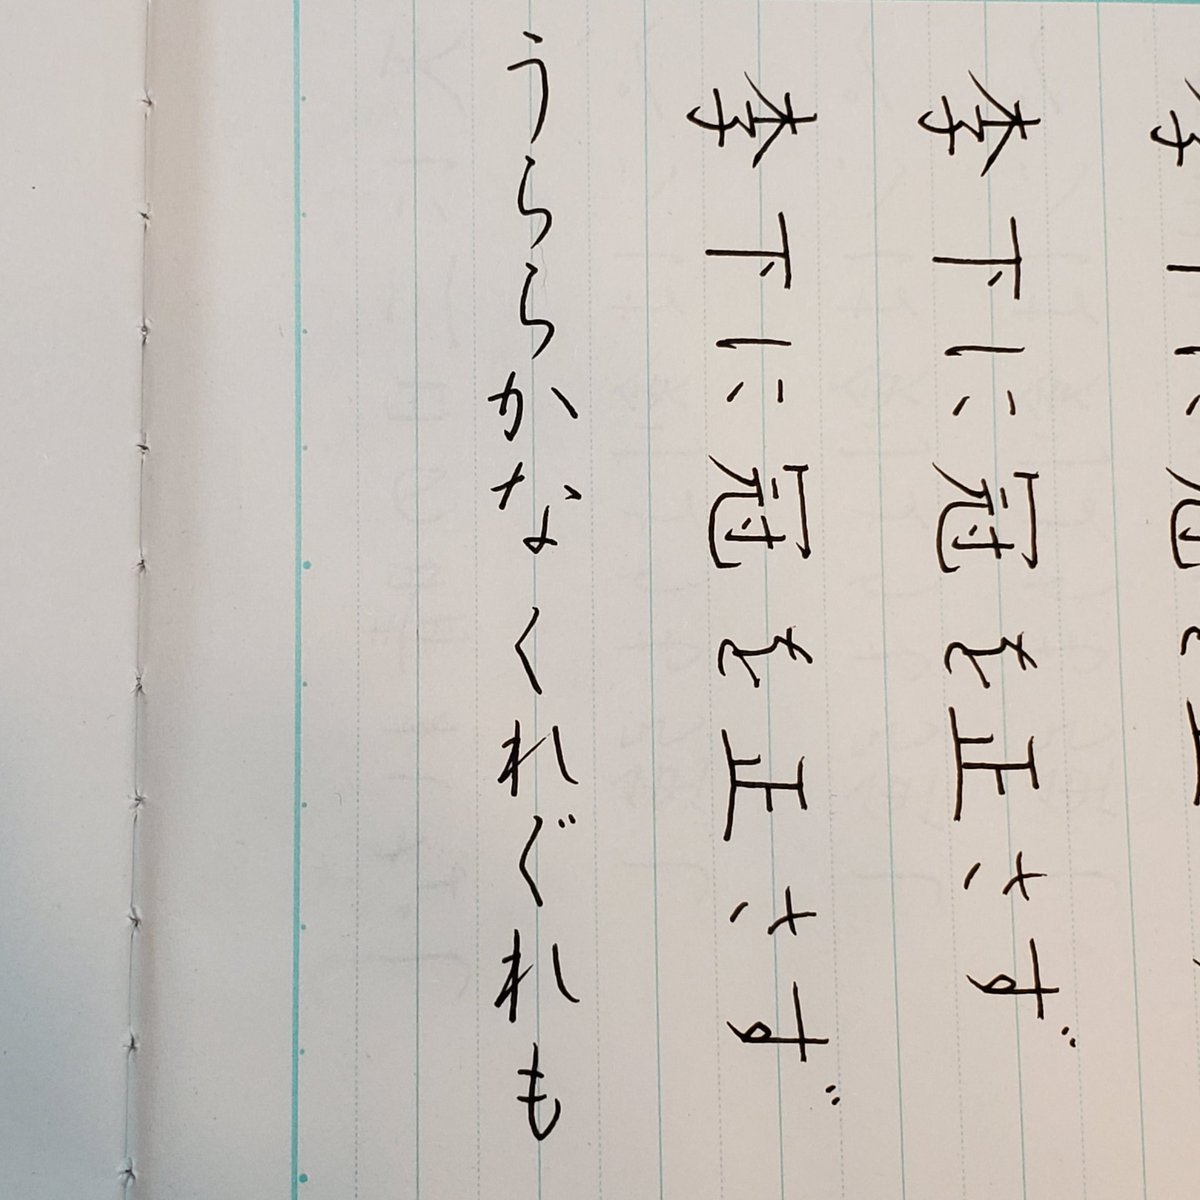 李下に冠を正さず
李下に冠を正さず
うららかなくれぐれも